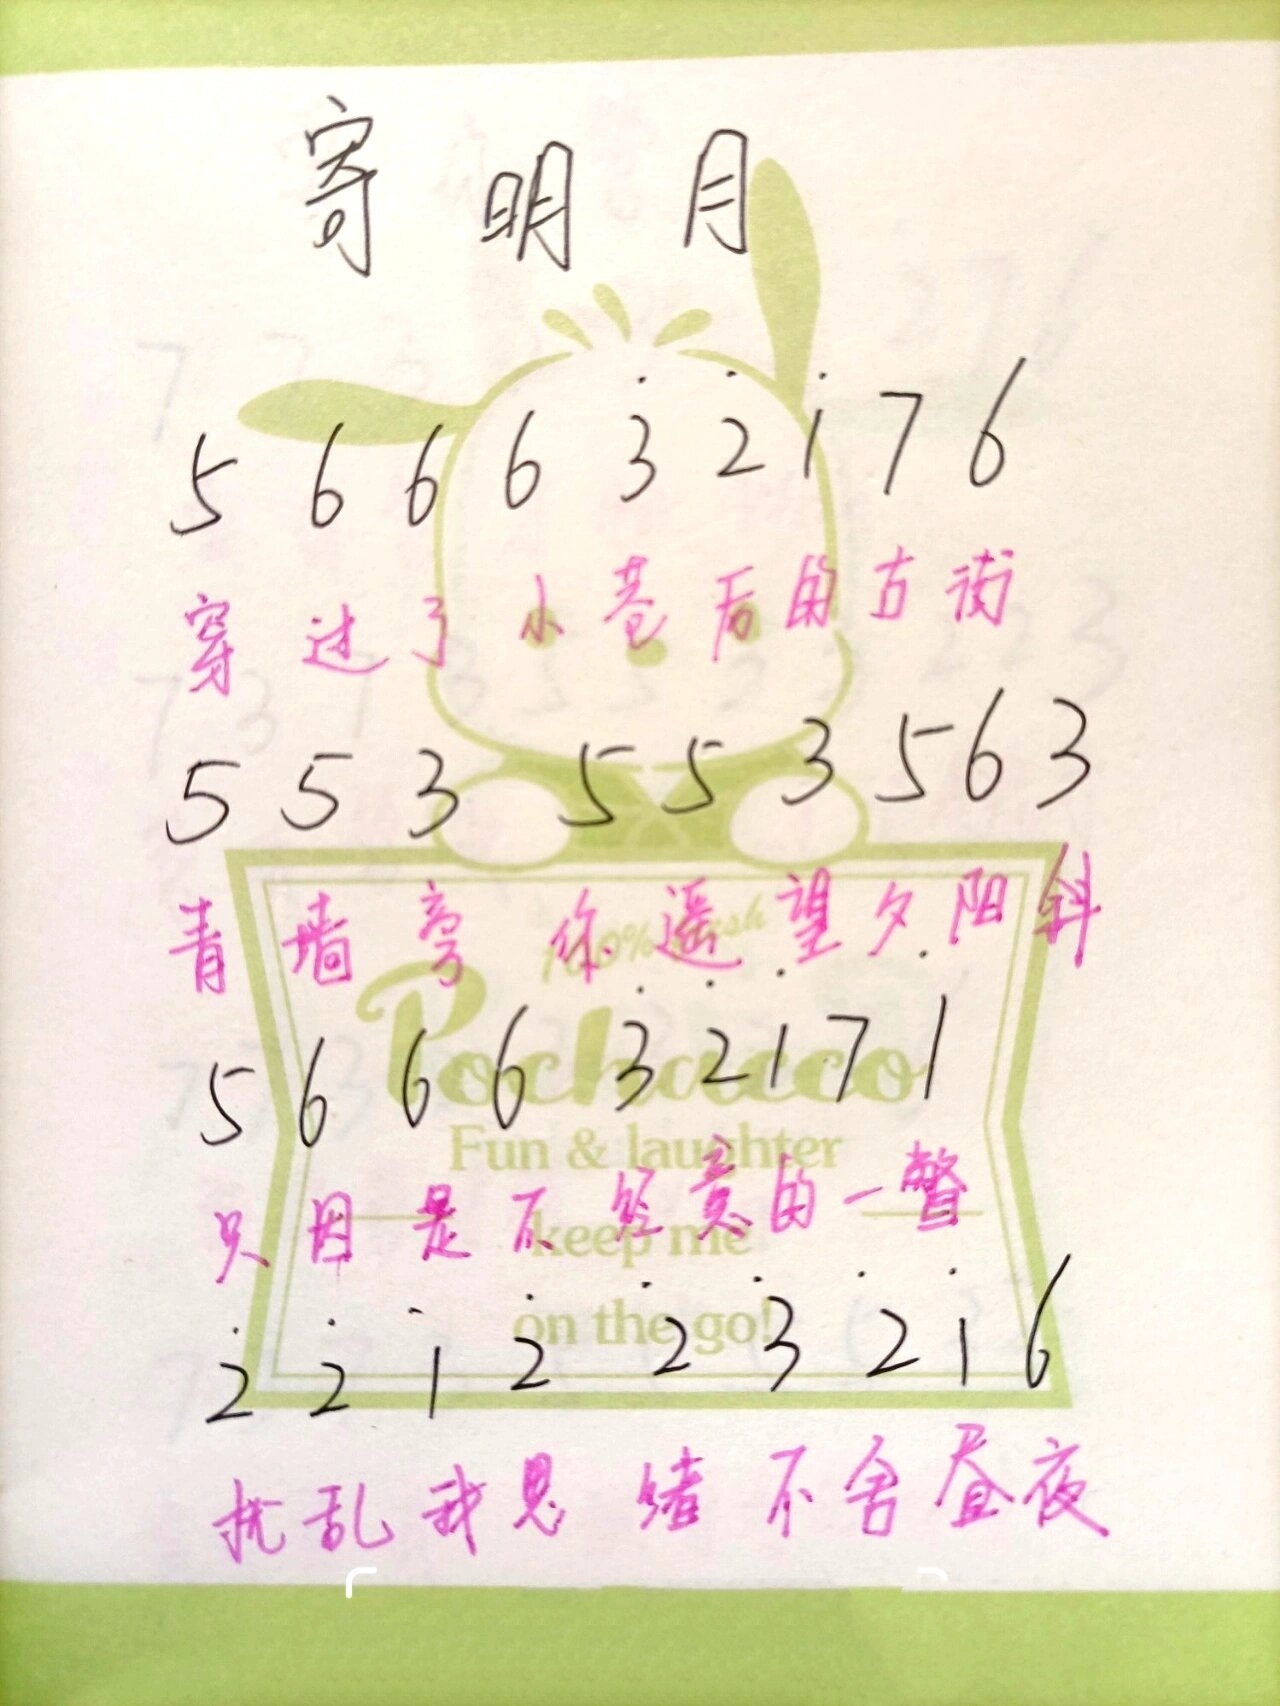 寄明月
5 6 6 6 3̇ 2̇ 1̇ 7 6
穿过了小巷后的古街
5 5 3 5 5 3 5 6 3
青墙旁 你遥望夕阳斜
100% fresh
5 6 6 6 3̇ 2̇ 1̇ 7 1̇
Pochacco
Fun & laughter
只因是不经意的一瞥
keep me
on the go!
2̇ 2̇ 1̇ 2̇ 2̇ 3̇ 2̇ 1̇ 6
扰乱我思绪不舍昼夜